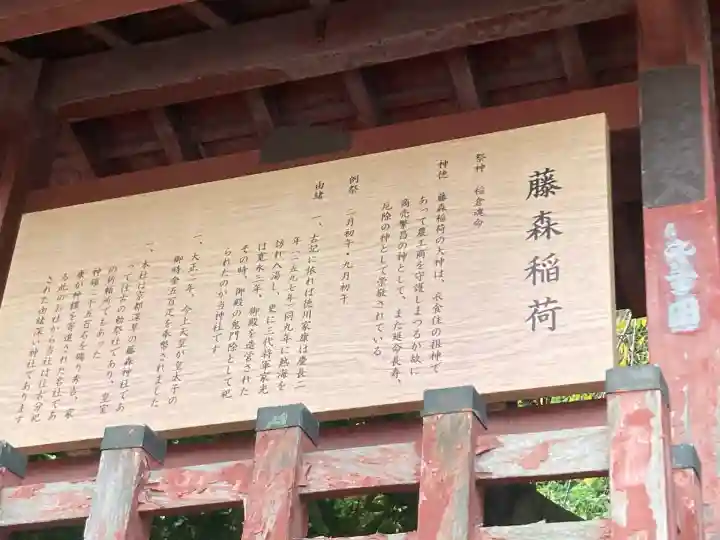 藤森稲荷
祭神 稲倉魂命
神徳 藤森稲荷の大神は、衣食住の祖神で
あって農工商を守護しまつるが故に
商売繁昌の神として、また延命長寿、
厄除の神として崇敬されている
例祭 二月初午・九月初午
由緒 一、古記に依れば徳川家康は慶長二
年(一五九七年)同九年に熱海を
訪れ入湯し、更に三代将軍家光
は寛永三年、御殿を造営された
その時、御殿の鬼門除として祀
られたのが当神社です
一、大正二年、今上天皇が皇太子の
御時金五百疋を奉幣されました
一、本社は京都深草の藤森神社であ
って往古の勅祭社であり、皇室
の祈願所でもあった
神領二千五百名を賜り秀吉、家
康が神標を寄進された名社であ
る此のお社から当社は往古分祀
された由緒深い神社であります